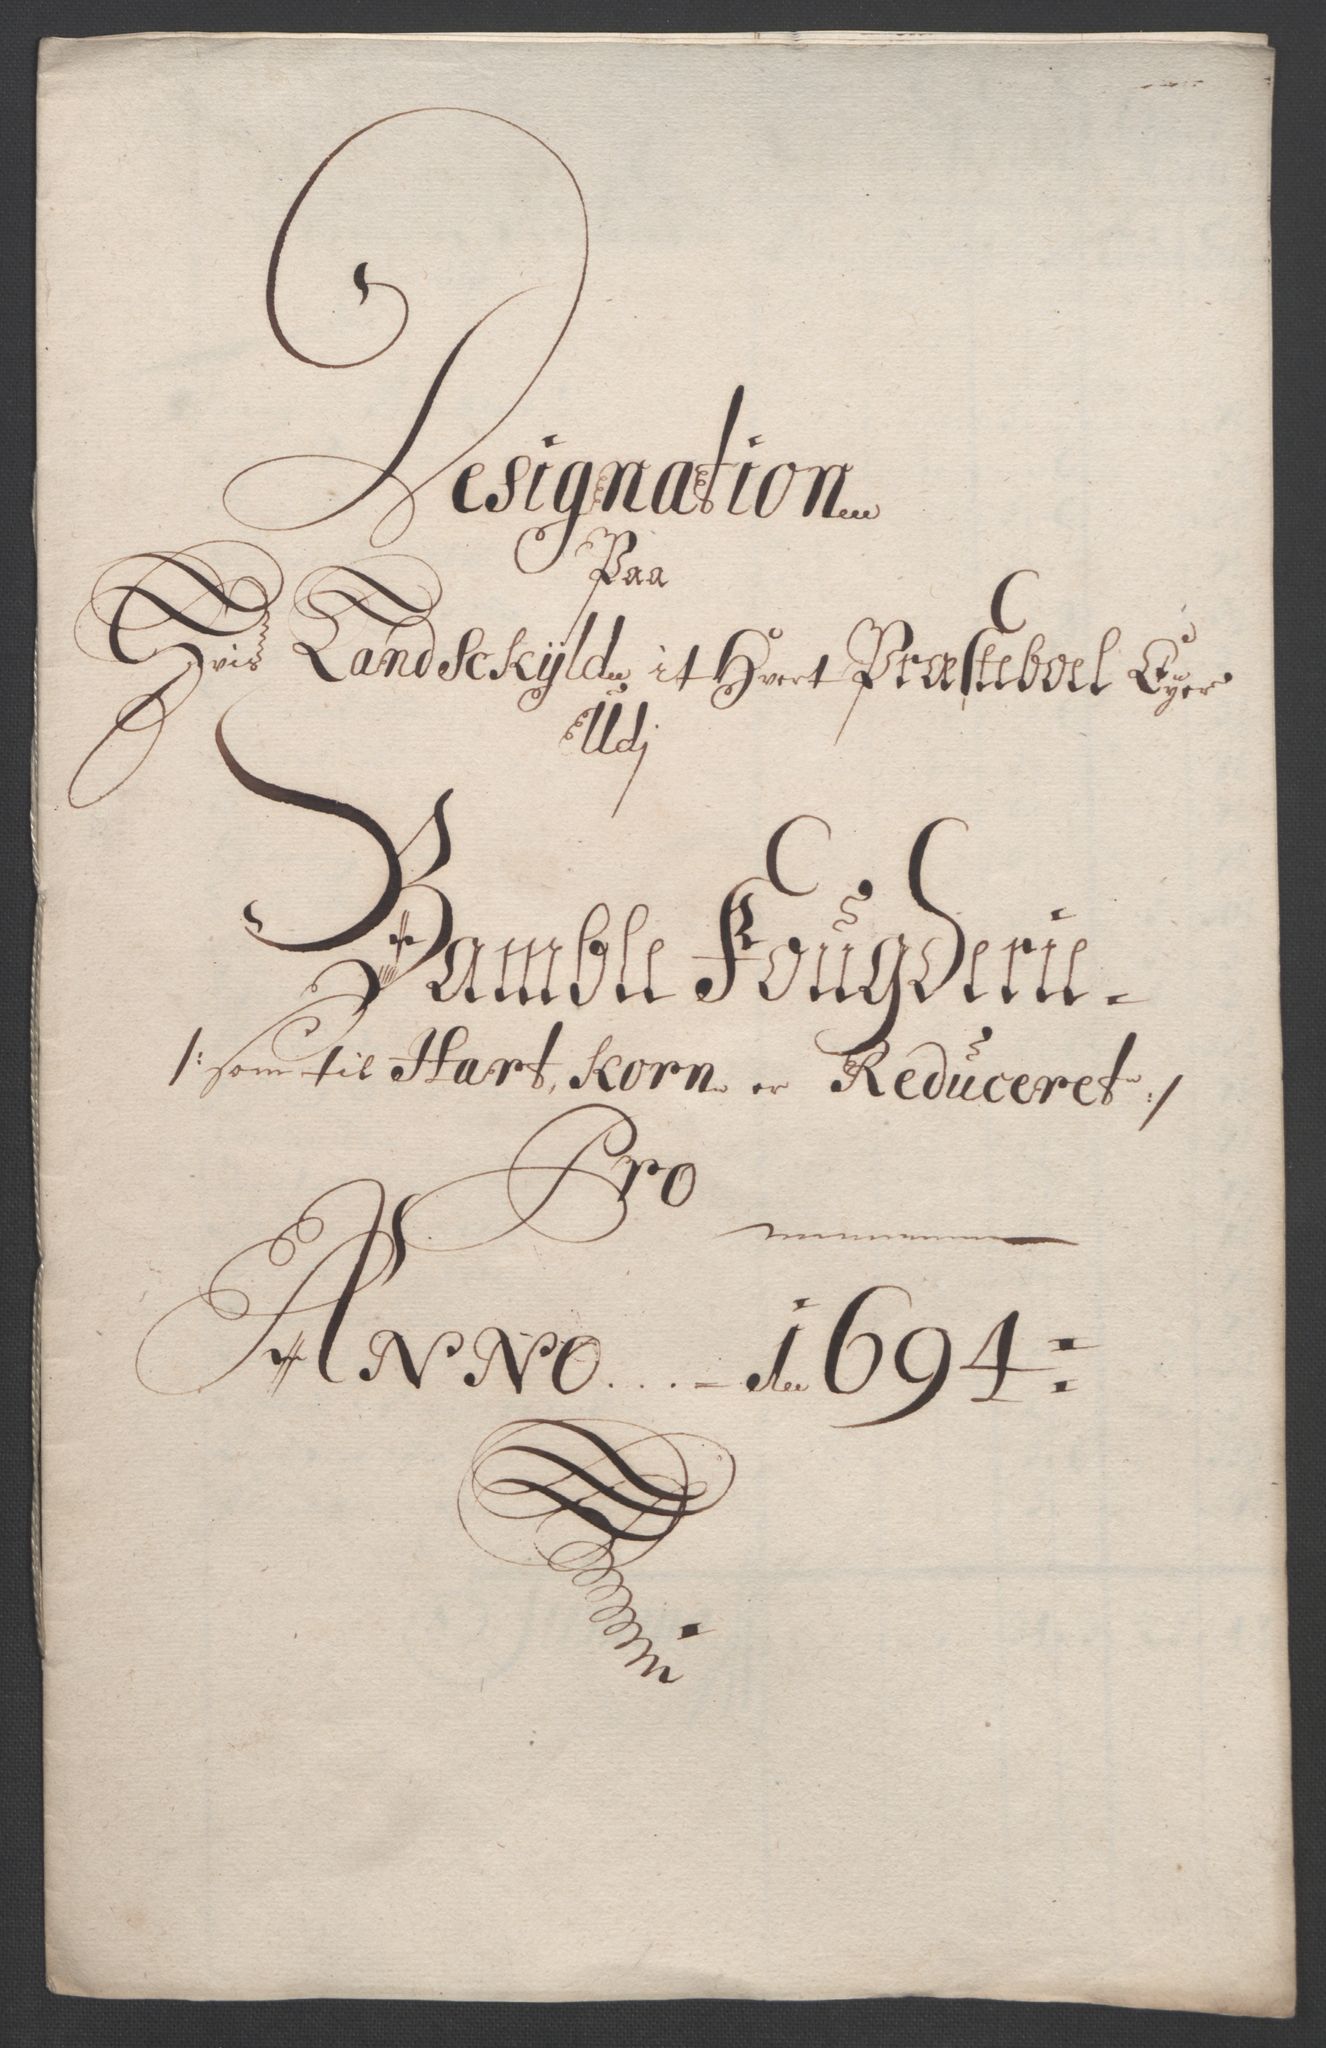 Designation
Paa
Hvis Landsckÿld it Hvert Præsteboel Eyer
Udj
Bamble Fougderie
/: som til Hart, korn er Reduceret :/
Pro
ANNO .... 1694: